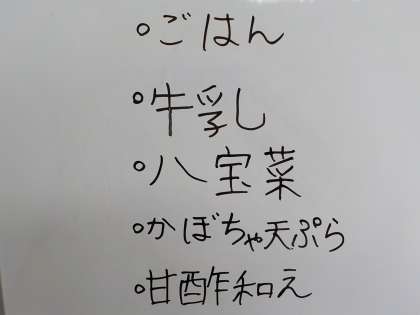 ・ごはん
・牛乳
・八宝菜
・かぼちゃ天ぷら
・甘酢和え